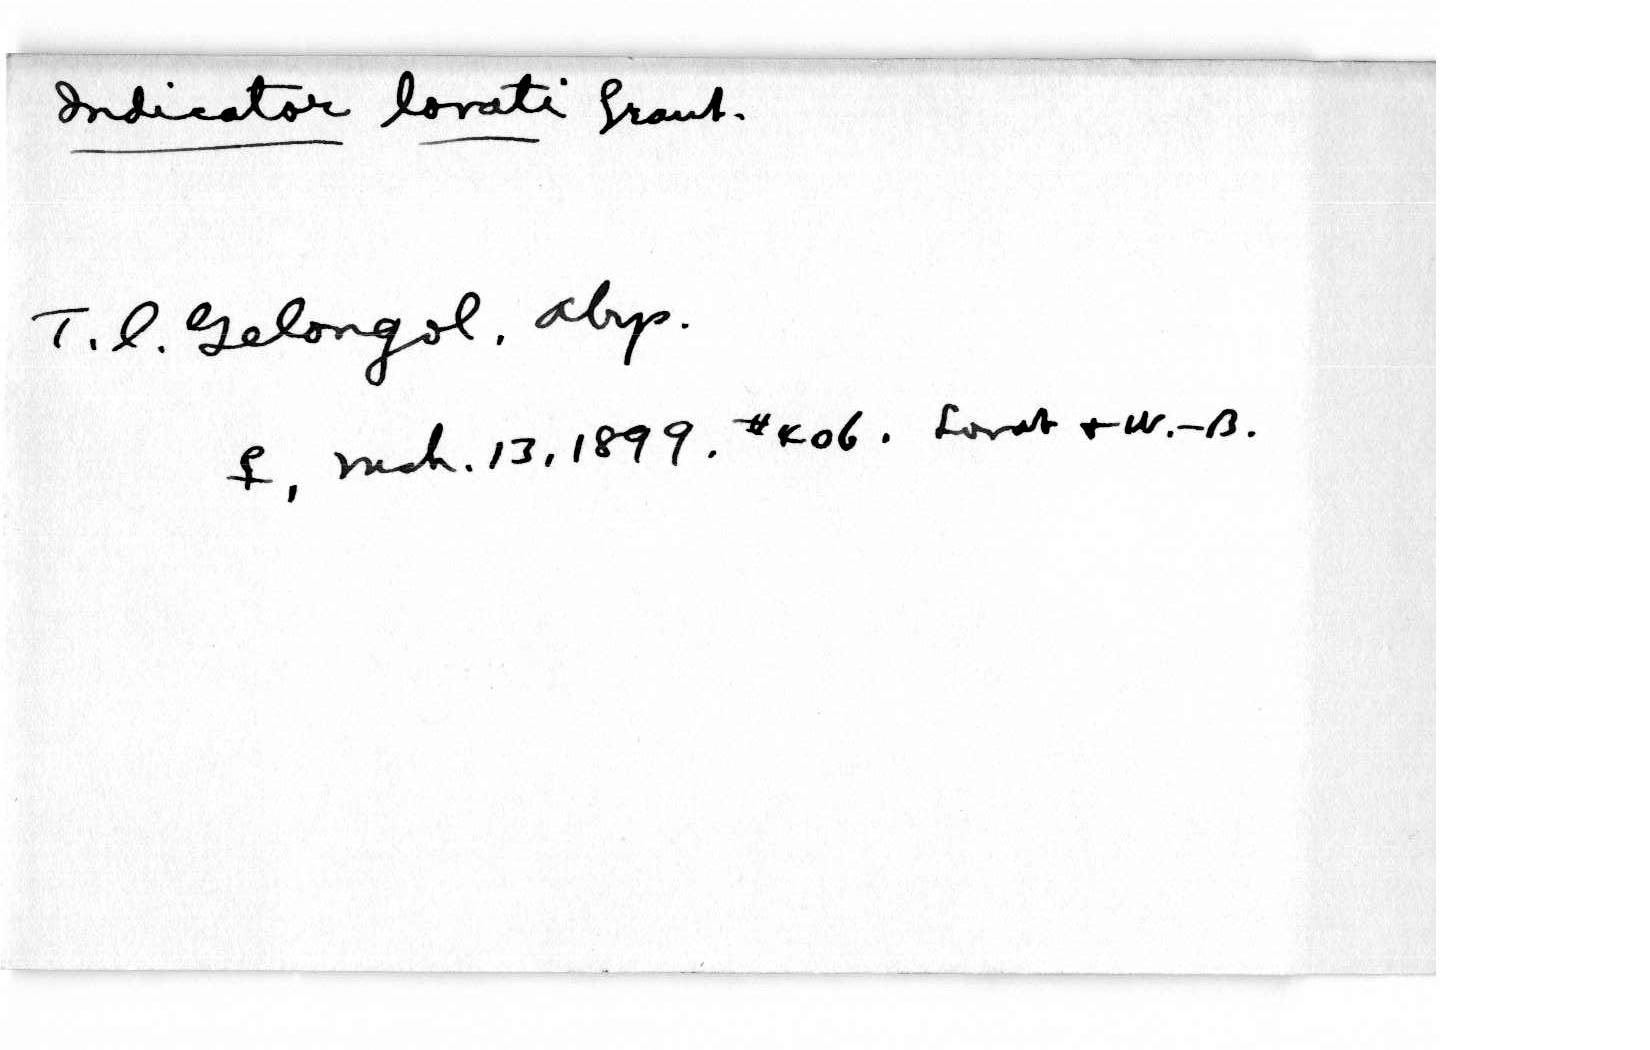 Indicator lovati Grant.
T. l. Gelongol, Abyp.
♀, Mch. 13, 1899. #K06. Lovat + W.-B.